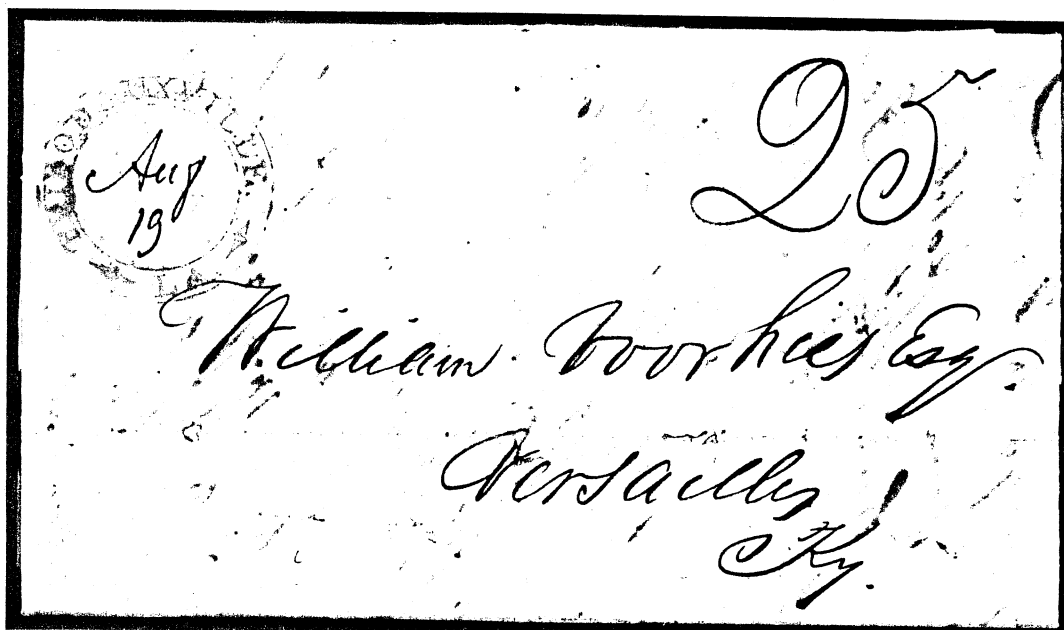 25
Aug
19
William Voorhies Esq.
Versailles
Ky.